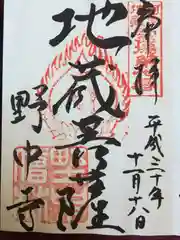 奉拝
平成三十年
十月十八日
地蔵菩薩
野中寺